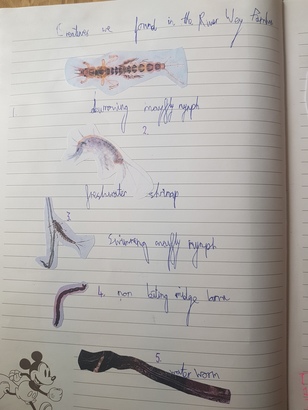 Creatures we found in the River Wey
burrowing mayfly nymph
2.
freshwater shrimp
3.
Swimming mayfly nymph
4. non biting midge larva
5.
water worm